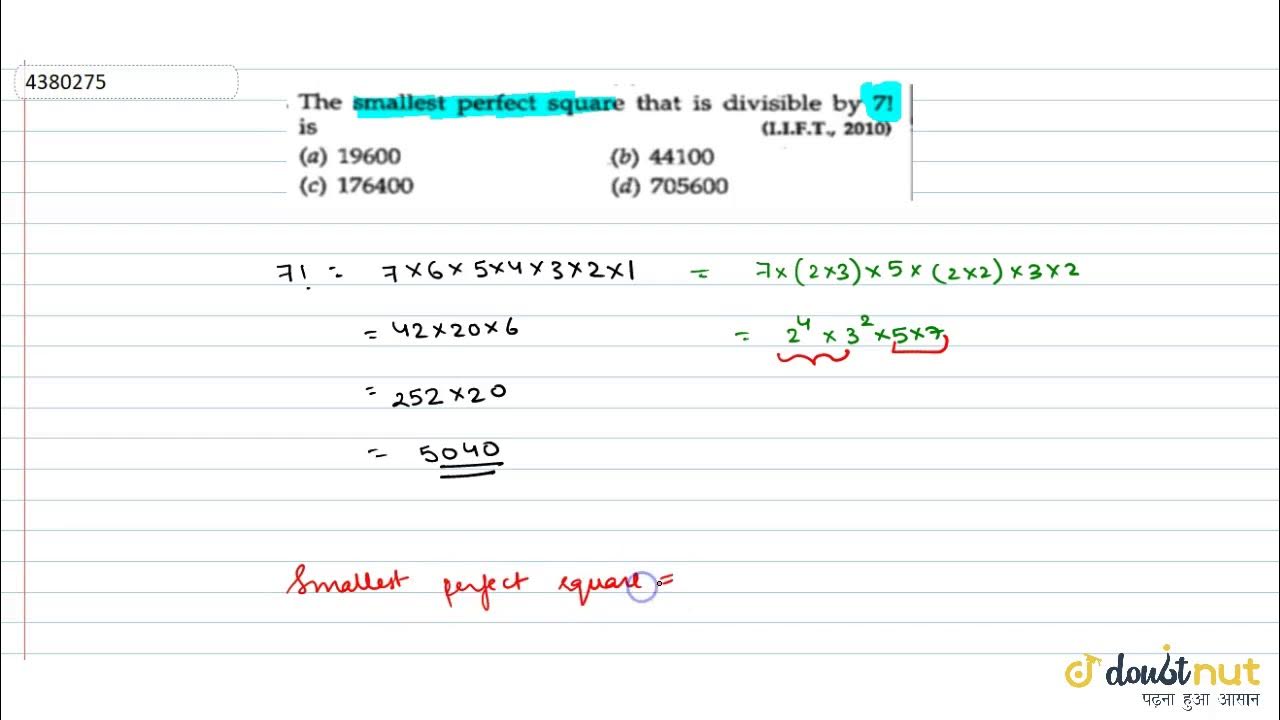 4380275
The smallest perfect square that is divisible by 7!
is (I.I.F.T., 2010)
(a) 19600 (b) 44100
(c) 176400 (d) 705600
7! = 7×6×5×4×3×2×1 = 7×(2×3)×5×(2×2)×3×2
= 42×20×6 = 2⁴×3²×5×7
= 252×20
= 5040
Smallest perfect square =
doubtnut
पढ़ना हुआ आसान